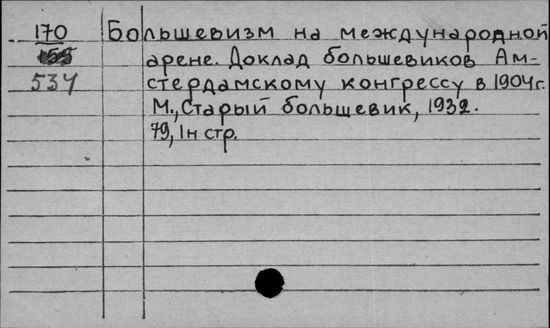 170 Большевизм на международной
арене. Доклад большевиков Ам-
534 стердамскому конгрессу в 1904г.
М., Старый большевик, 1932.
79, 1н стр.